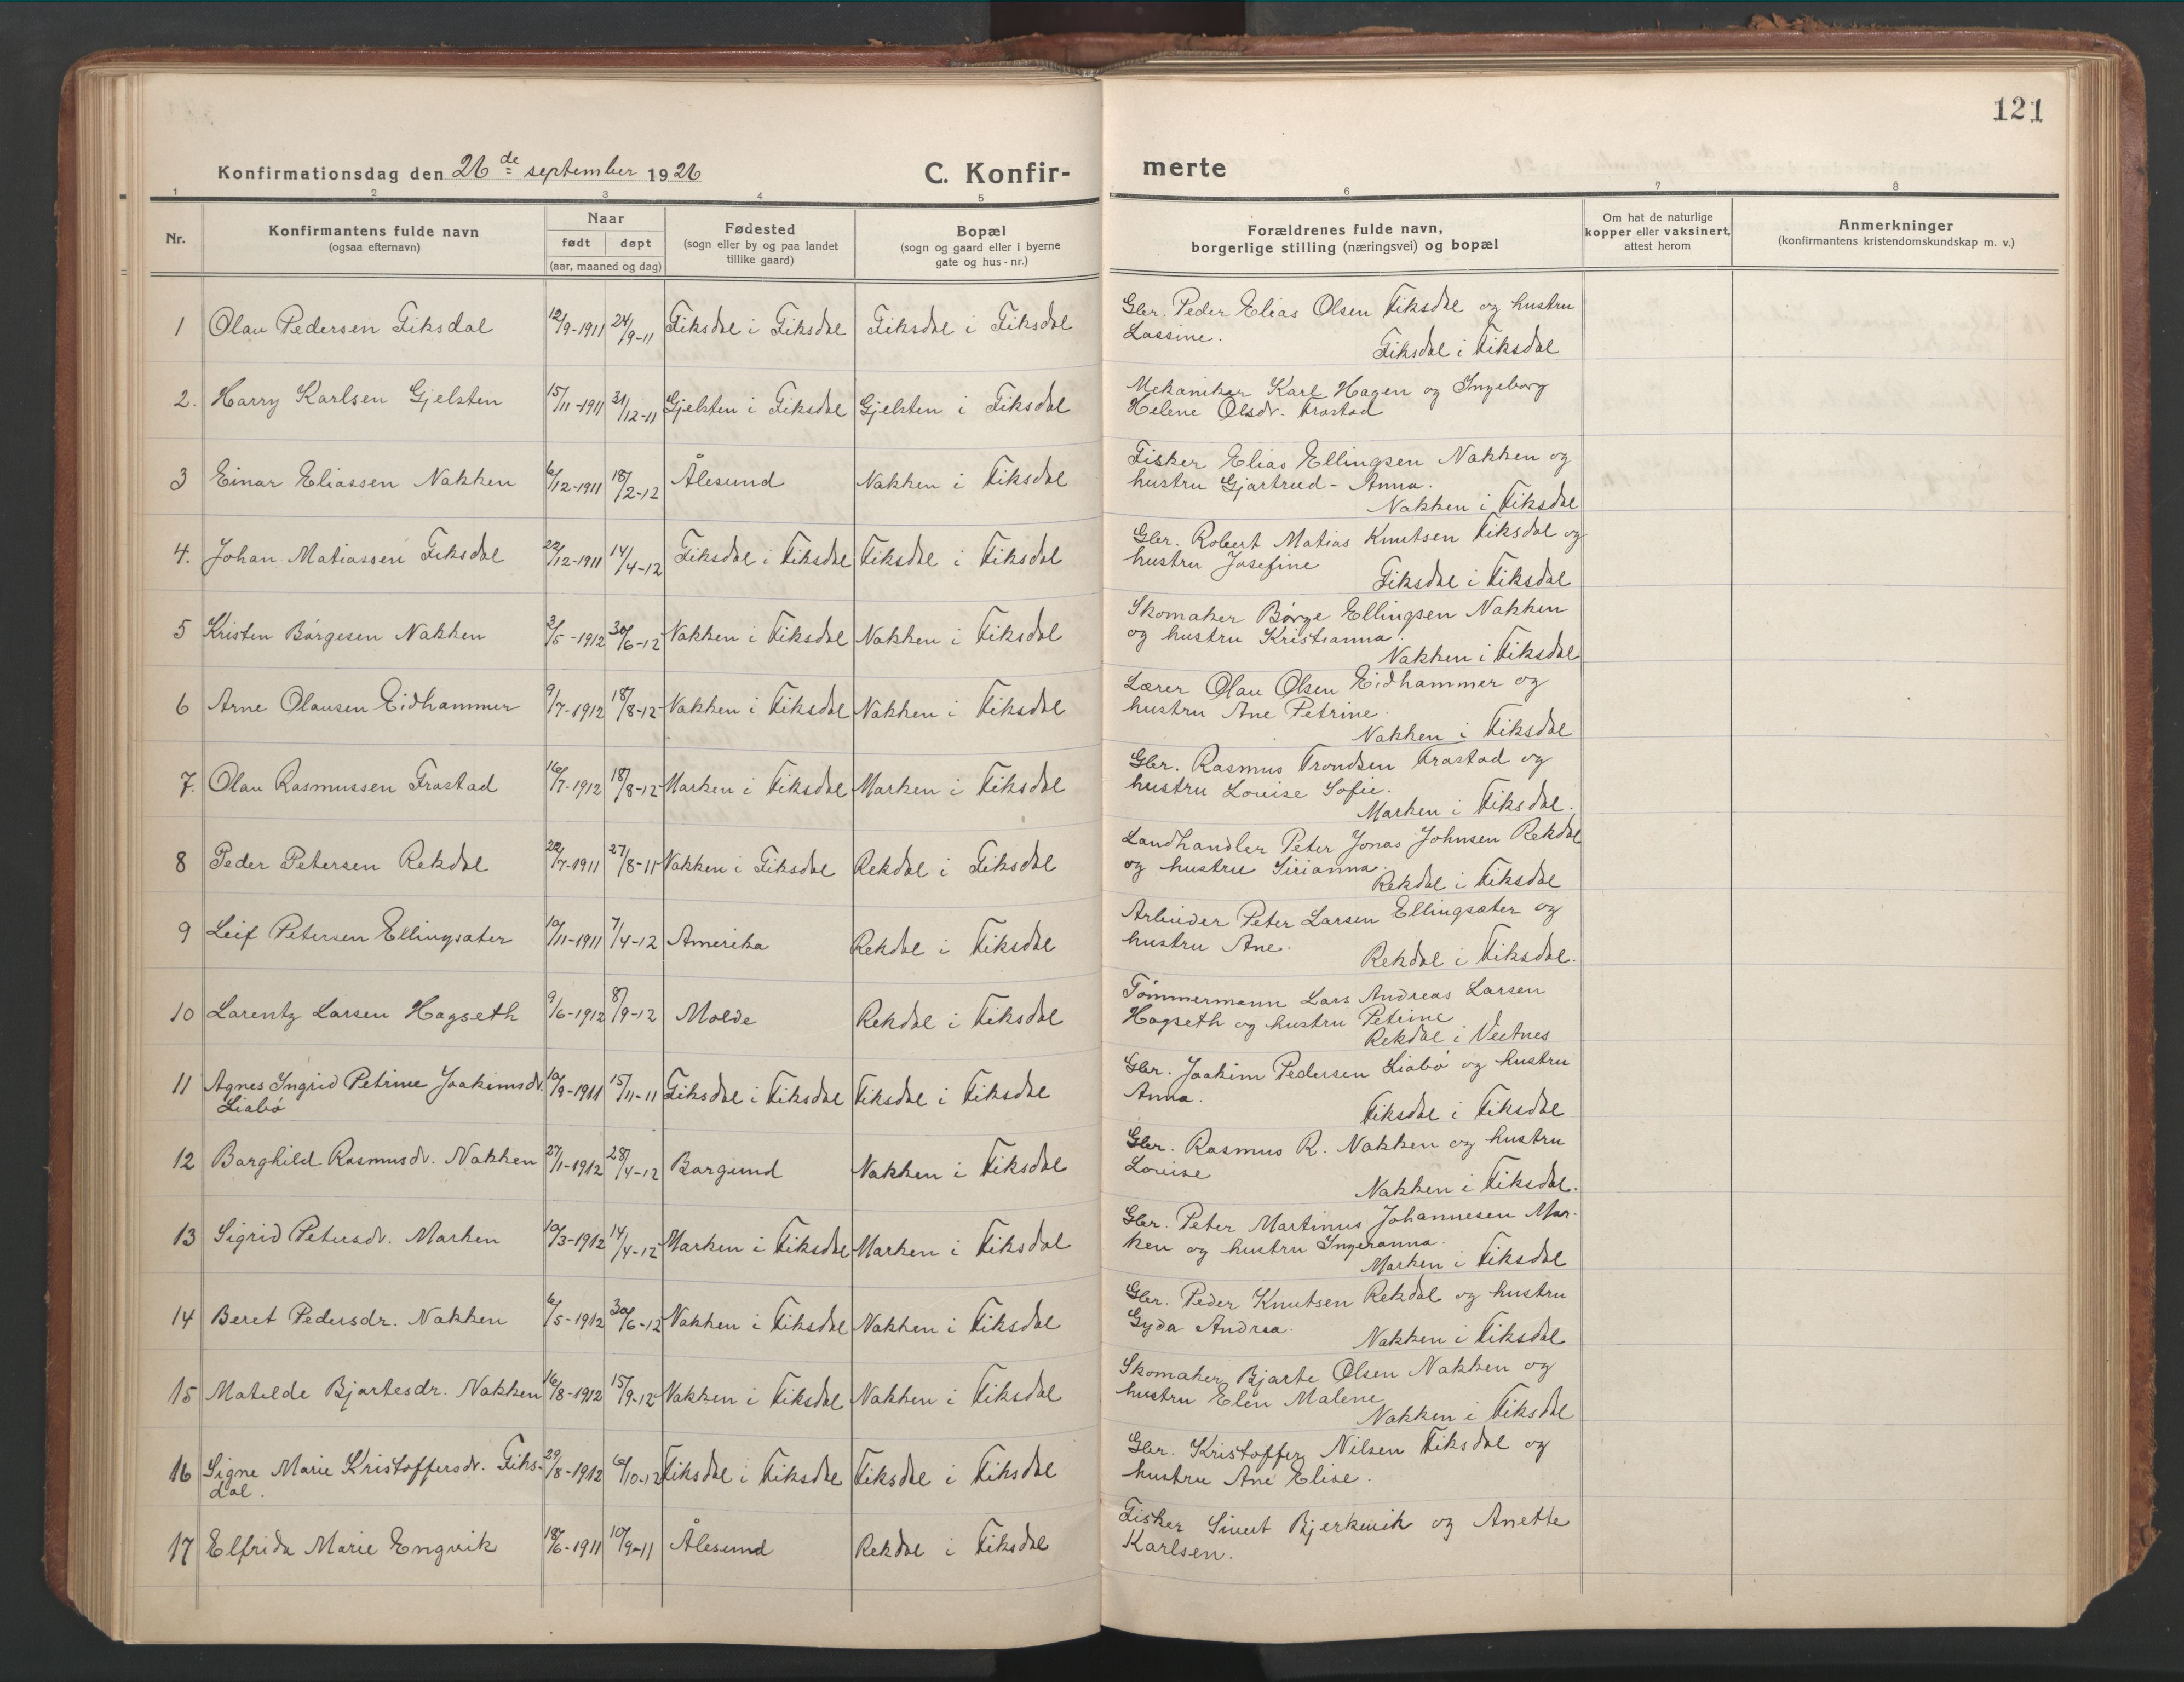 121
Konfirmationsdag den 26de september 1926 C. Konfirmerte
1 2 3 4 5 6 7 8
Nr. Konfirmantens fulde navn (ogsaa efternavn) Naar født døpt (aar, maaned og dag) Fødested (sogn eller by og paa landet tillike gaard) Bopæl (sogn og gaard eller i byerne gate og hus-nr.) Forældrenes fulde navn, borgerlige stilling (næringsvei) og bopæl Om hat de naturlige kopper eller vaksinert, attest herom Anmerkninger (konfirmantens kristendomskundskap m. v.)
1 Olau Pedersen Fiksdal 12/9-1911 24/9-11 Fiksdal i Fiksdal Fiksdal i Fiksdal Gbr. Peder Elias Olsen Fiksdal og hustru
Lassine. Fiksdal i Fiksdal
2. Harry Karlsen Gjelsten 15/11-1911 31/12-11 Gjelsten i Fiksdal Gjelsten i Fiksdal Mekaniker Karl Hagen og Ingeborg
Helene Olsdr. Frostad
3 Einar Eliassen Nakken 6/12-1911 18/2-12 Ålesund Nakken i Fiksdal Fisker Elias Ellingsen Nakken og
hustru Gjartrud-Anna.
Nakken i Fiksdal
4. Johan Matiassen Fiksdal 22/12-1911 14/4-12 Fiksdal i Fiksdal Fiksdal i Fiksdal Gbr. Robert Matias Knutsen Fiksdal og
hustru Josefine
Fiksdal i Fiksdal
5 Kristen Børgesen Nakken 3/5-1912 30/6-12 Nakken i Fiksdal Nakken i Fiksdal Skomaker Børge Ellingsen Nakken
og hustru Kristianna.
Nakken i Fiksdal
6 Arne Olausen Eidhammer 9/7-1912 18/8-12 Nakken i Fiksdal Nakken i Fiksdal Lærer Olau Olsen Eidhammer og
hustru Ane Petrine.
Nakken i Fiksdal
7. Olau Rasmussen Frostad 16/7-1912 18/8-12 Marken i Fiksdal Marken i Fiksdal Gbr. Rasmus Trondsen Frostad og
hustru Louise Sofie.
Marken i Fiksdal.
8 Peder Petersen Rekdal 22/7-1911 27/8-11 Nakken i Fiksdal Rekdal i Fiksdal Landhandler Peter Jonas Johnsen Rekdal
og hustru Sirianna.
Rekdal i Fiksdal
9 Leif Petersen Ellingsæter 10/11-1911 7/4-12 Amerika Rekdal i Fiksdal Arbeider Peter Larsen Ellingsæter og
hustru Ane.
Rekdal i Fiksdal.
10 Lorentz Larsen Hagseth 9/6-1912 8/9-12 Molde Rekdal i Fiksdal Tømmermann Lars Andreas Larsen
Hagseth og hustru Petrine
Rekdal i Vestnes
11 Agnes Ingrid Petrine Joakimsdr. 10/9-1911 15/11-11 Fiksdal i Fiksdal Fiksdal i Fiksdal Gbr. Joakim Pedersen Liabø og hustru
Liabø Anna.
Fiksdal i Fiksdal
12 Borghild Rasmusdr. Nakken 27/1-1912 28/4-12 Borgund Nakken i Fiksdal Gbr. Rasmus R. Nakken og hustru
Louise
Nakken i Fiksdal.
13 Sigrid Petersdr. Marken 10/3-1912 14/4-12 Marken i Fiksdal Marken i Fiksdal Gbr. Peter Martinus Johannesen Mar-
ken og hustru Ingeranna.
Marken i Fiksdal
14 Beret Pedersdr. Nakken 6/5-1912 30/6-12 Nakken i Fiksdal Nakken i Fiksdal Gbr. Peder Knutsen Rekdal og hustru
Gyda Andrea.
Nakken i Fiksdal
15 Matilde Bjartesdr. Nakken 16/8-1912 15/9-12 Nakken i Fiksdal Nakken i Fiksdal Skomaker Bjarte Olsen Nakken og
hustru Elen Malene
Nakken i Fiksdal
16 Signe Marie Kristoffersdr. Fiks- 29/8-1912 6/10-12 Fiksdal i Fiksdal Fiksdal i Fiksdal Gbr. Kristoffer Nilsen Fiksdal og
dal. hustru Ane Elise.
17 Elfrida Marie Engvik 18/6-1911 10/9-11 Ålesund Rekdal i Fiksdal Fisker Sivert Bjerkevik og Anette
Karlsen.